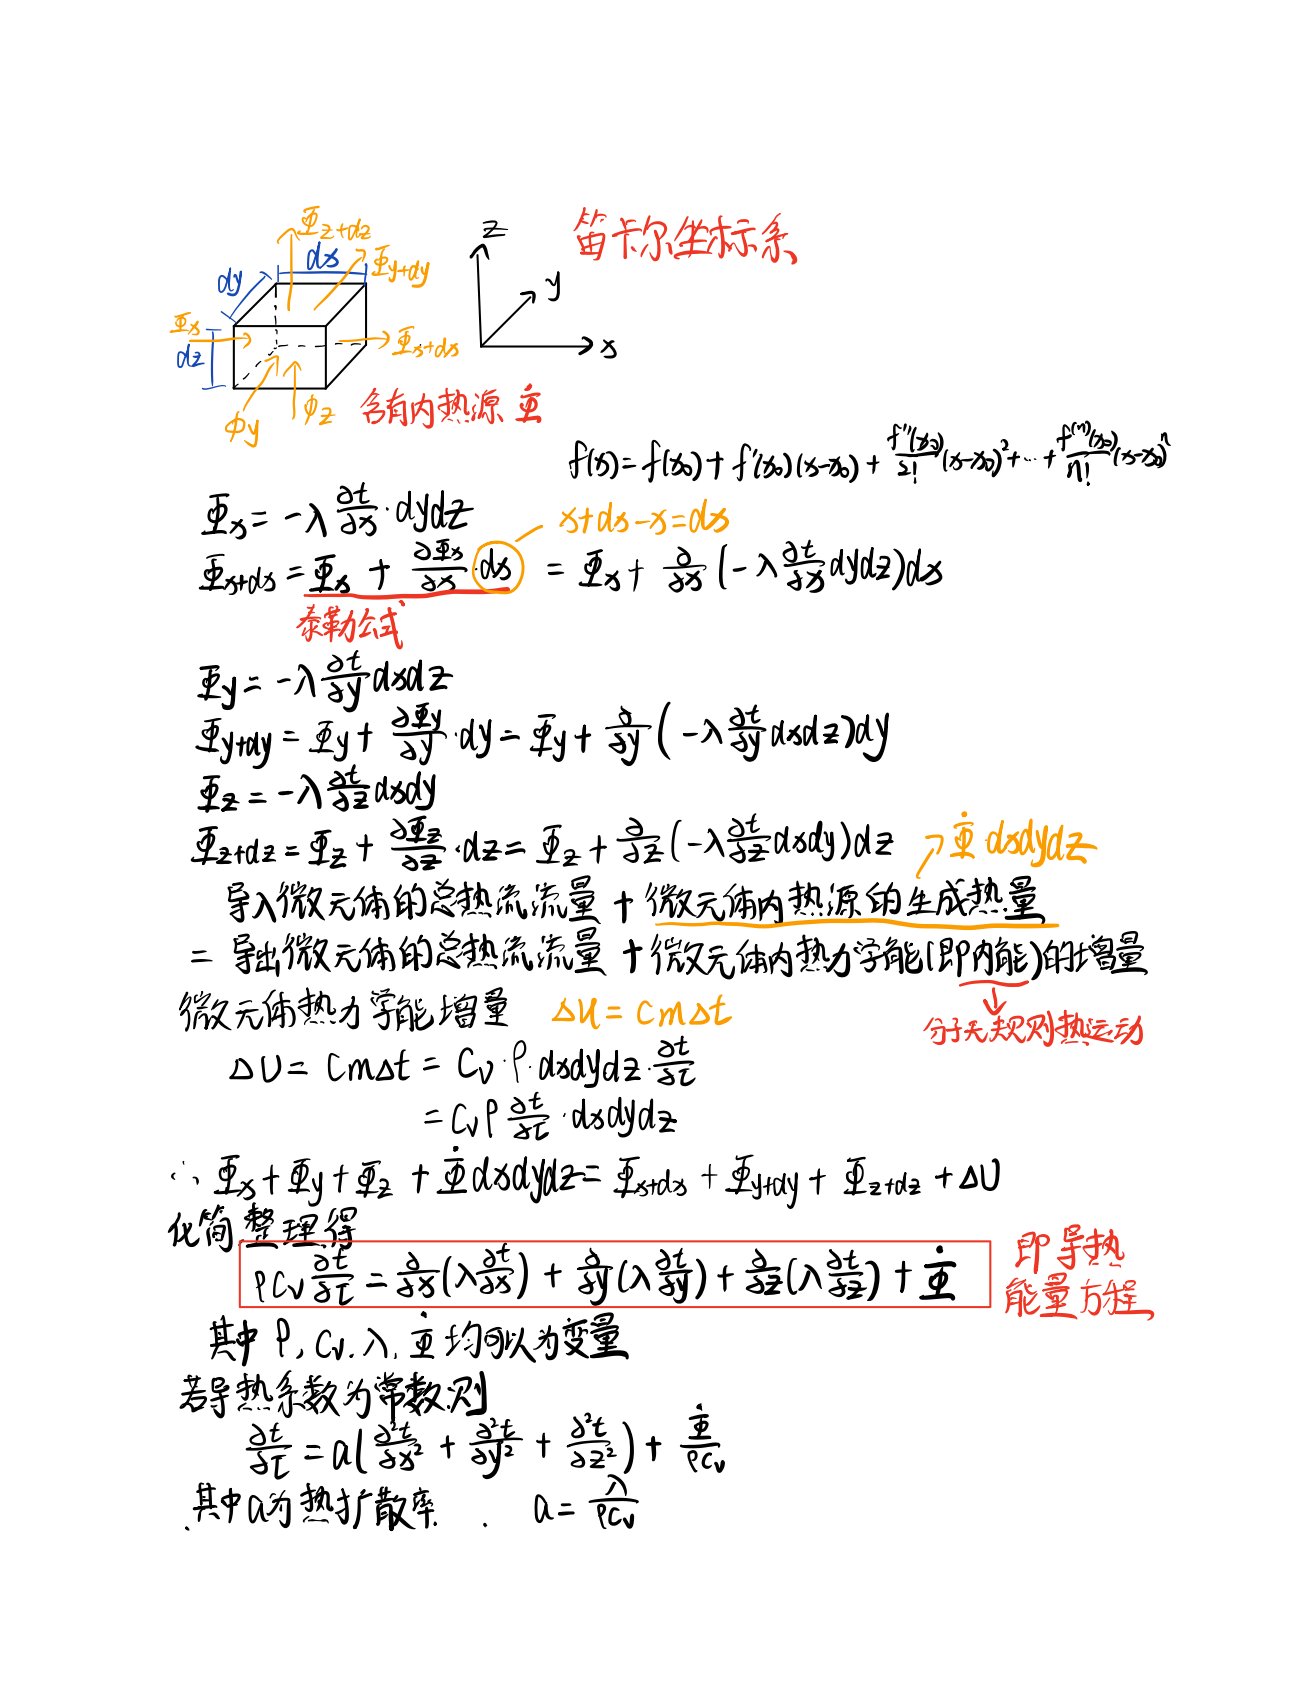 Φz+dz
dx
dy
Φy+dy
Φx
dz
Φx+dx
Φy
Φz
z
y
x
笛卡尔坐标系
含有内热源 Φ̇
f(x)=f(x₀)+f'(x₀)(x-x₀)+f''(x₀)/2!(x-x₀)²+…+f⁽ⁿ⁾(x₀)/n!(x-x₀)ⁿ
Φx=-λ∂t/∂x·dydz
x+dx-x=dx
Φx+dx=Φx+∂Φx/∂x·dx=Φx+∂/∂x(-λ∂t/∂x dydz)dx
泰勒公式
Φy=-λ∂t/∂y dxdz
Φy+dy=Φy+∂Φy/∂y·dy=Φy+∂/∂y(-λ∂t/∂y dxdz)dy
Φz=-λ∂t/∂z dxdy
Φz+dz=Φz+∂Φz/∂z·dz=Φz+∂/∂z(-λ∂t/∂z dxdy)dz
Φ̇ dxdydz
导入微元体的总热流流量+微元体内热源的生成热量
=导出微元体的总热流流量+微元体内热力学能(即内能)的增量
分子无规则热运动
微元体热力学能增量 ΔU=cmΔt
ΔU=CmΔt=Cv·ρ·dxdydz·∂t/∂τ
=Cvρ∂t/∂τ·dxdydz
∴Φx+Φy+Φz+Φ̇dxdydz=Φx+dx+Φy+dy+Φz+dz+ΔU
化简整理得
ρCv∂t/∂τ=∂/∂x(λ∂t/∂x)+∂/∂y(λ∂t/∂y)+∂/∂z(λ∂t/∂z)+Φ̇
即导热
能量方程
其中ρ,Cv.λ,Φ̇均可以为变量
若导热系数为常数则
∂t/∂τ=a(∂²t/∂x²+∂²t/∂y²+∂²t/∂z²)+Φ̇/ρCv
其中a为热扩散率. a=λ/ρCv